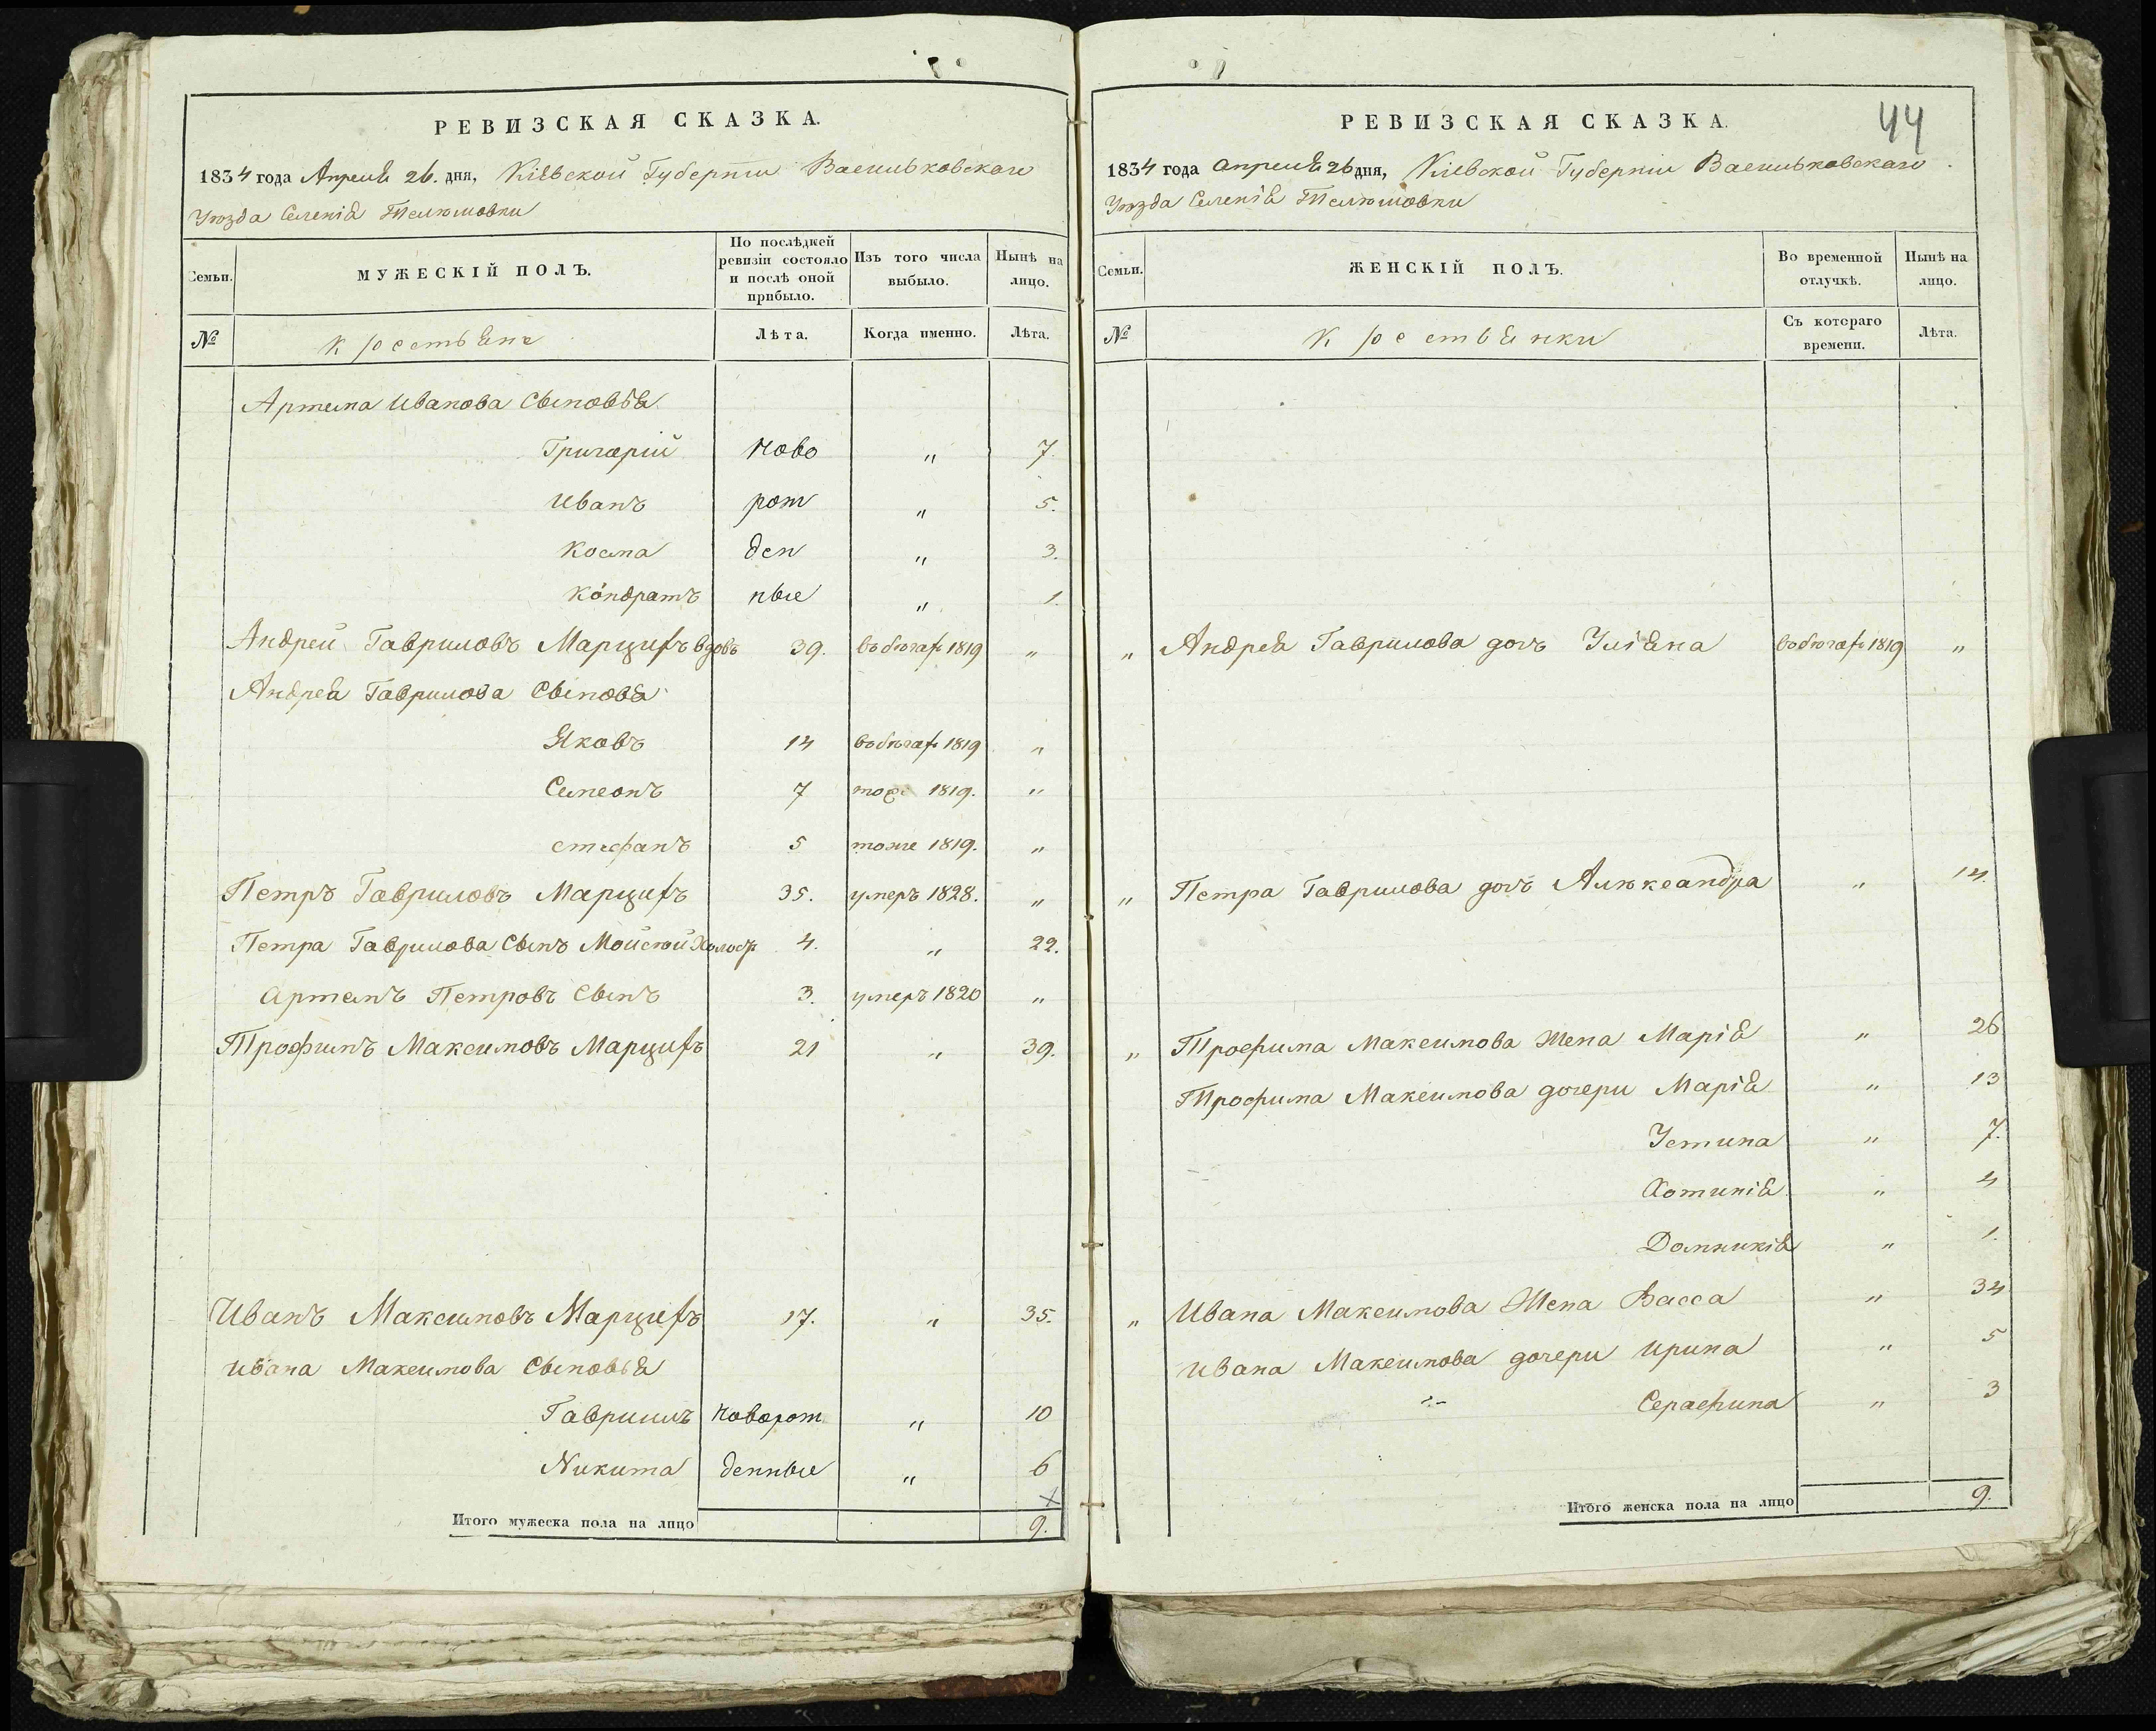 РЕВИЗСКАЯ СКАЗКА.
1834 года Апреля 26. дня, Кіевской Губерніи Васильковскаго
Уѣзда Селенія Телюшовки
Семьи.
МУЖЕСКІЙ ПОЛЪ.
По послѣдней ревизіи состояло и послѣ оной прибыло.
Изъ того числа выбыло.
Нынѣ на лицо.
№
Крестьянъ
Лѣта.
Когда именно.
Лѣта.
Артема Иванова Сыновья
Григорій Ново " 7.
Иванъ рож " 5.
Косма ден " 3.
Кондратъ ные " 1.
Андрей Гавриловъ Марцифъ вдовъ 39. въ бѣгах 1819 "
Андрея Гаврилова Сыновья
Яковъ 14 въ бѣгах 1819 "
Симеонъ 7 тоже 1819. "
Стефанъ 5 тоже 1819. "
Петръ Гавриловъ Марцифъ 35. умеръ 1828. "
Петра Гаврилова Сынъ Мойсей Холост 4. " 22.
Артемъ Петровъ Сынъ 3. умеръ 1820 "
Трофимъ Максимовъ Марцифъ 21 " 39.
Иванъ Максимовъ Марцифъ 17. " 35.
Ивана Максимова Сыновья
Гавриилъ Новорож " 10
Никита денные " 6
Итого мужеска пола на лицо 9.
44
РЕВИЗСКАЯ СКАЗКА.
1834 года Апреля 26 дня, Кіевской Губерніи Васильковскаго
Уѣзда Селенія Телюшовки
Семьи.
ЖЕНСКІЙ ПОЛЪ.
Во временной отлучкѣ.
Нынѣ на лицо.
№
Крестьянки
Съ котораго времени.
Лѣта.
" Андрея Гаврилова дочь Уліяна въ бѣгах 1819 "
" Петра Гаврилова дочь Александра " 14.
" Трофима Максимова Жена Марія " 26
Трофима Максимова дочери Марія " 13
Устина " 7.
Хотинія " 4
Домникія " 1.
" Ивана Максимова Жена Васса " 34
Ивана Максимова дочери Ирина " 5
Серафима " 3
Итого женска пола на лицо 9.